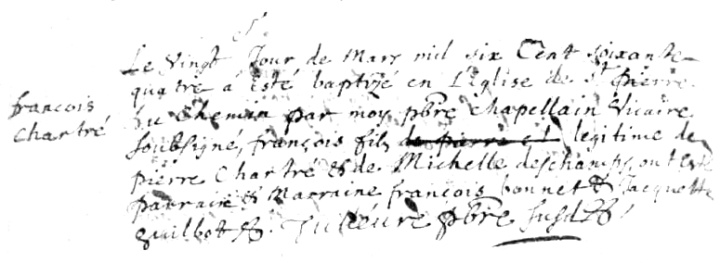 Le vingt Jour de Mars mil six Cent soixante
quatre a esté baptizé en L'Eglise de St pierre
du Chemin par moy pbre chapellain Vicaire
françois
chartré
soubsigné, françois fils de pierre et legitime de
pierre Chartré & de Michelle deschamps, ont esté
parrain & Marraine françois bonnet & Jacquette
guilbot &. pbre susd